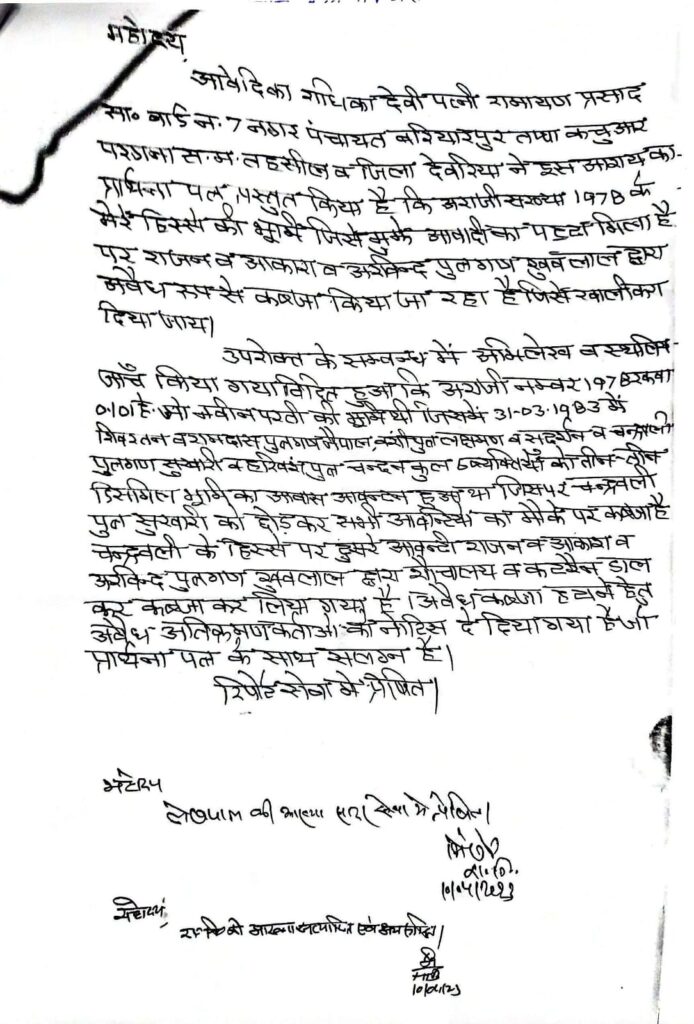 महोदय,
आवेदिका राधिका देवी पत्नी रामायण प्रसाद
सा० वार्ड न. 7 नगर पंचायत बरियारपुर तप्पा कचुआर
परगना स. म. तहसील व जिला देवरिया ने इस आशय का
प्रार्थना पत्र प्रस्तुत किया है कि अराजी संख्या 197B के
मेरे हिस्से की भूमि जिसे मुझे आबादी का पट्टा मिला है
पर राजन व आकाश व अरविन्द पुत्रगण खुबलाल द्वारा
अवैध रूप से कब्जा किया जा रहा है जिसे खाली करा
दिया जाय।
उपरोक्त के सम्बन्ध में अभिलेख व स्थलिय
जाँच किया गया विदित हुआ कि अराजी नम्बर 197B रकबा
0.101हे. जो नवीन परती की भूमि थी जिसमें 31-03-1983 में
शिवरतन व रामदास पुत्रगण नेपाल, बंशी पुत्र लक्ष्मण व सुदर्शन व चन्द्रावली
पुत्रगण सुखारी व हरिवंश पुत्र चन्दन कुल 6 व्यक्तियों को तीन-तीन
डिसमिल भूमि का आवास आवन्टन हुआ था जिसपर चन्द्रवली
पुत्र सुखारी को छोड़ कर सभी आवन्टियों का मौके पर कब्जा है
चन्द्रवली के हिस्से पर दुसरे आवन्टी राजन व आकाश व
अरविन्द पुत्रगण खुबलाल द्वारा शौचालय व करटैन डाल
कर कब्जा कर लिया गया है। अवैध कब्जा हटाने हेतु
अवैध अतिक्रमणकर्ताओं को नोटिस दे दिया गया है जो
प्रार्थना पत्र के साथ संलग्न है।
रिपोर्ट सेवा में प्रेषित।
महोदय
लेखपाल की आख्या सादर सेवा में प्रेषित।
रा.नि.
10/04/2023
महोदय,
रा.नि. की आख्या
10/04/23